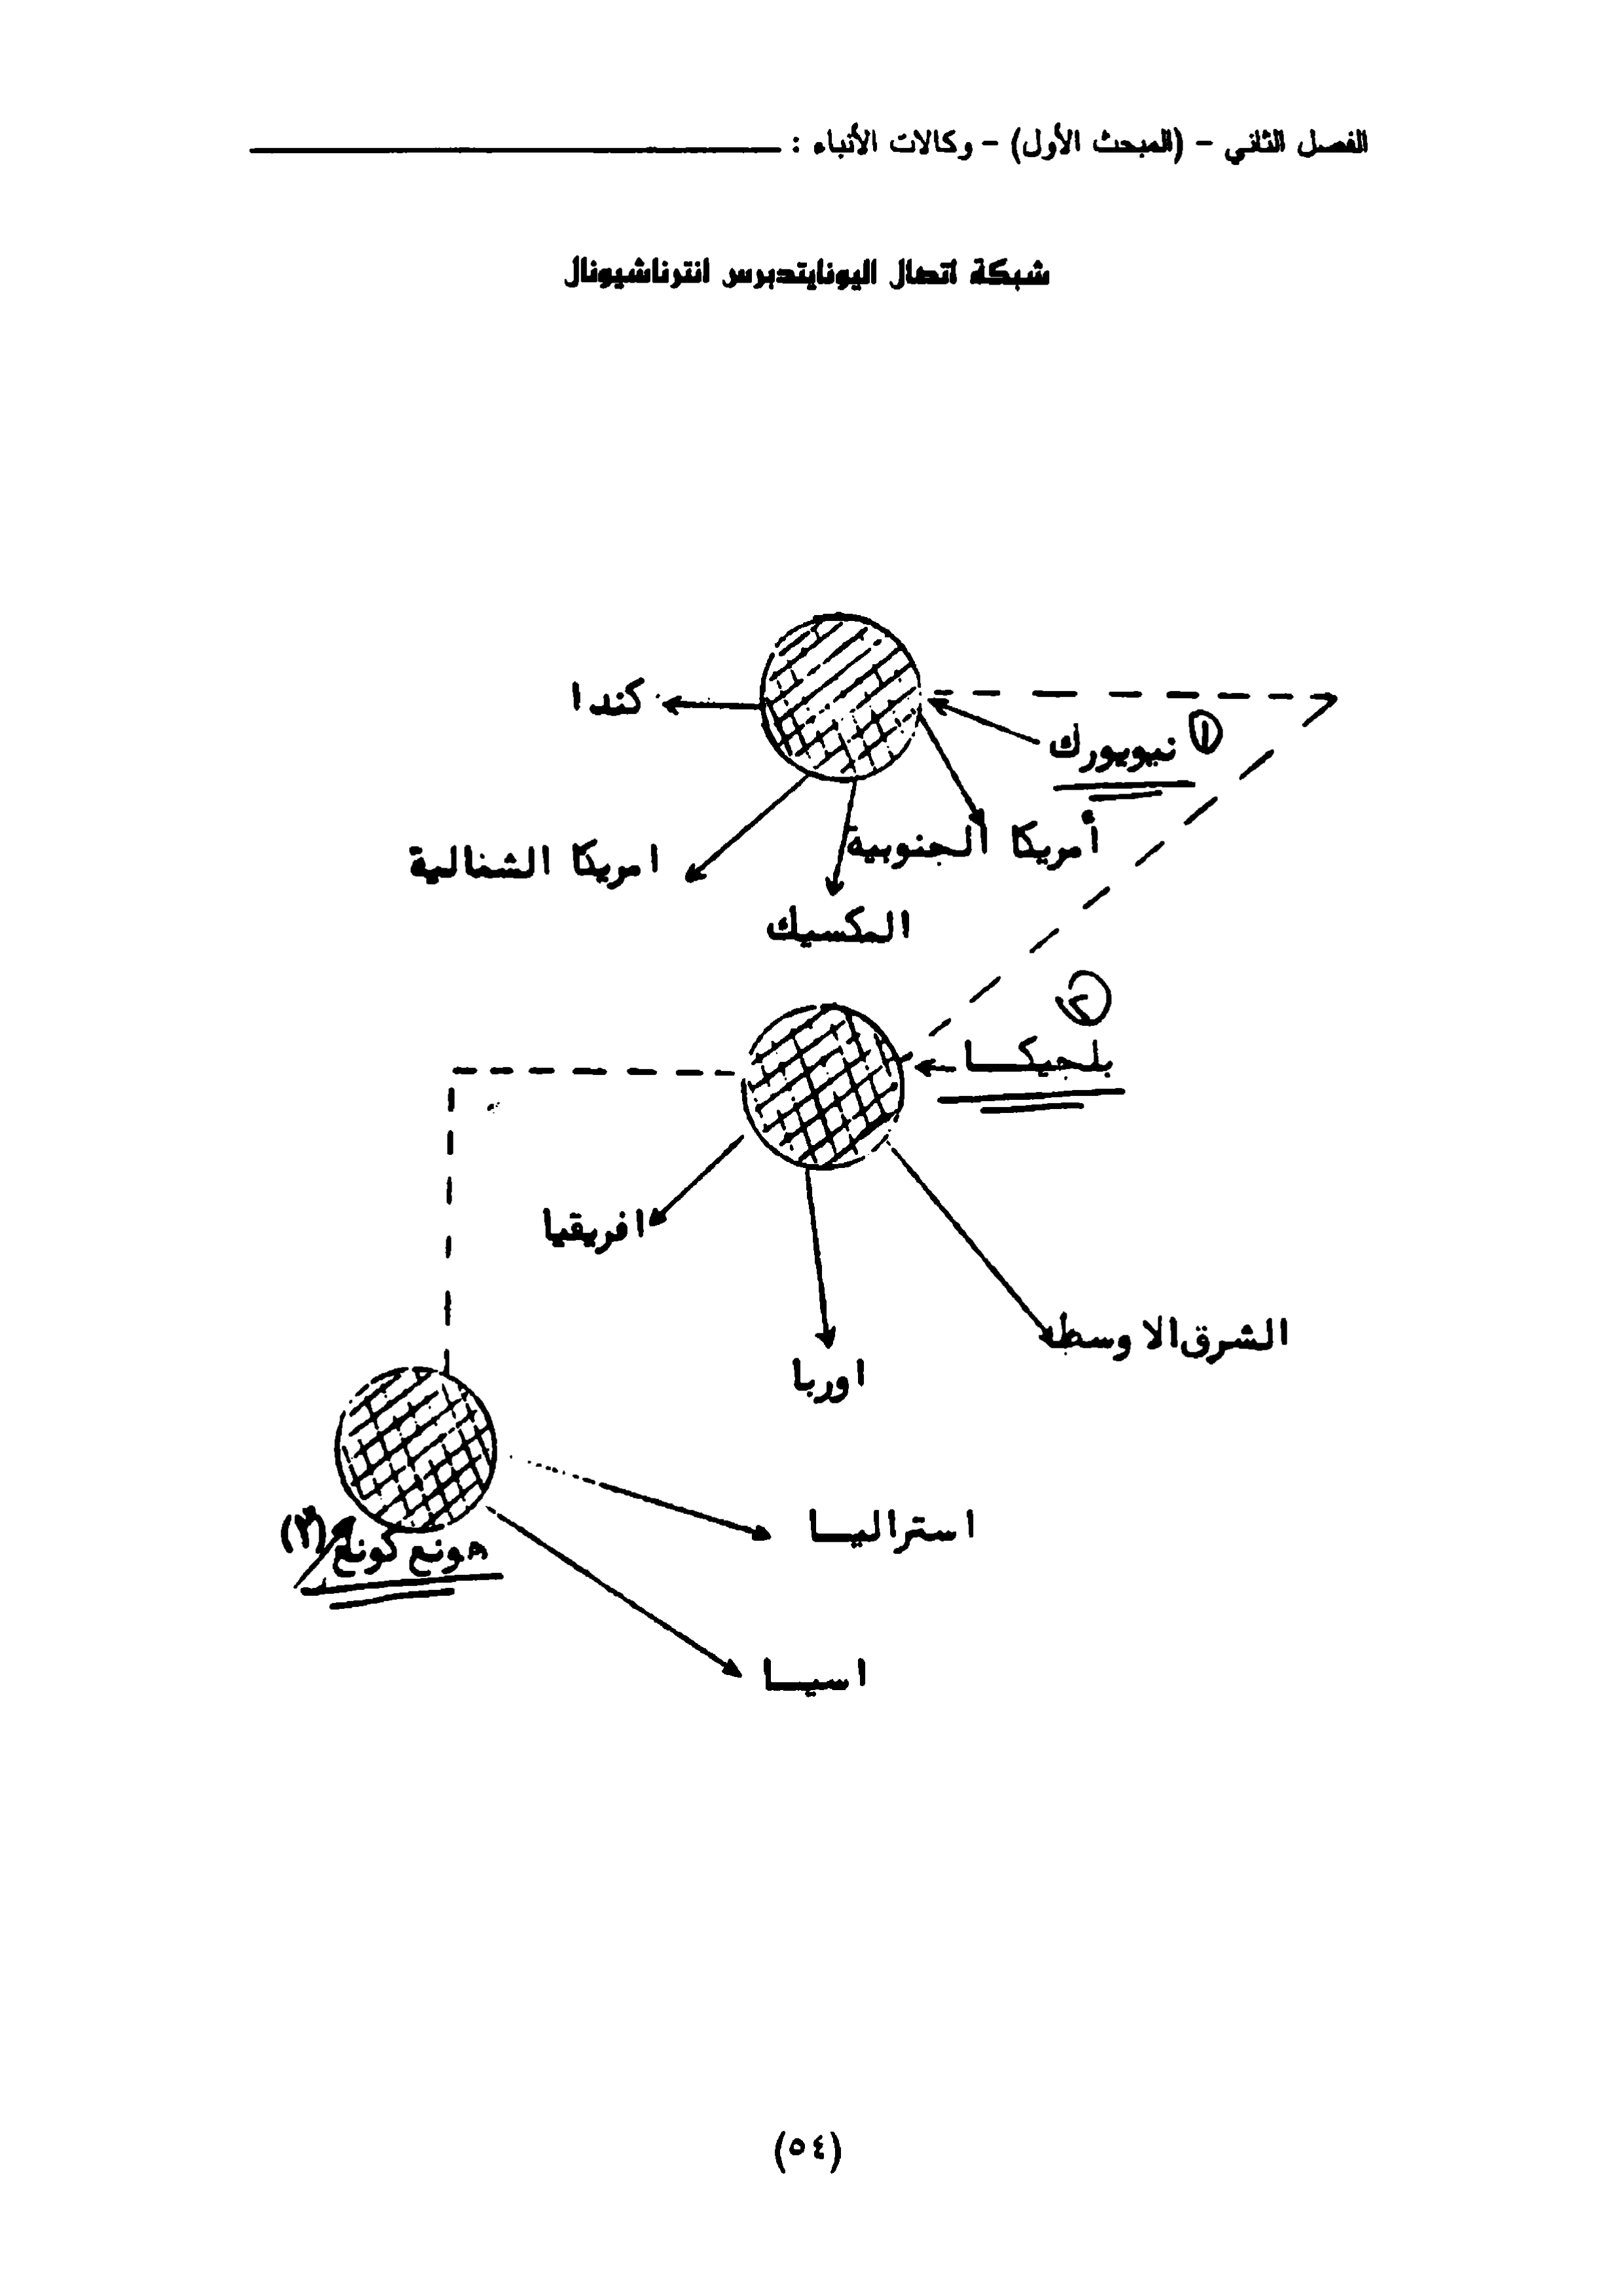 الفصل الثاني - (المبحث الأول) - وكالات الأنباء :
شبكة اتصال اليونايتدبرس انترناشيونال
كندا
① نيويورك
أمريكا الجنوبية
امريكا الشمالية
المكسيك
②
بلجيكـــا
افريقيا
الشرق الاوسط
اوربا
استراليـــا
هونع كونع (٣)
اسيـــا
(٥٤)